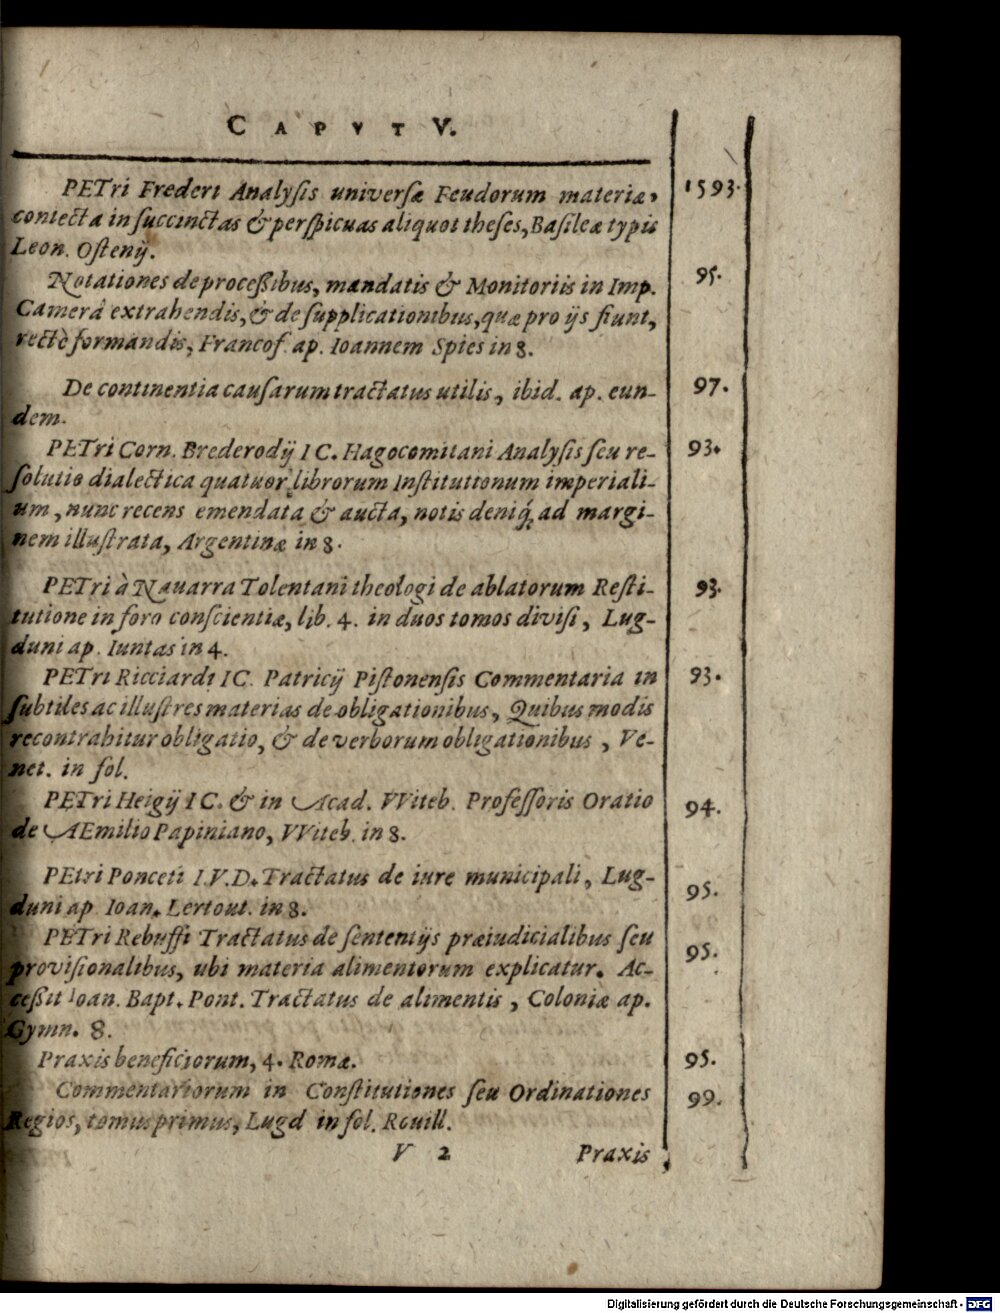 CAPVT V.
PETri Frederi Analyſis univerſæ Feudorum materiæ, 1593.
contecta in ſuccinctas & perſpicuas aliquot theſes, Baſileæ typis
Leon. Oſtenij.
Notationes de proceſſibus, mandatis & Monitoriis in Imp. 95.
Camerâ extrahendis, & de ſupplicationibus, quæ pro ijs fiunt,
rectè formandis, Francof. ap. Ioannem Spies in 8.
De continentia cauſarum tractatus utilis, ibid. ap. eun- 97.
dem.
PETri Corn. Brederodij IC. Hagocomitani Analyſis ſeu re- 93.
ſolutio dialectica quatuor librorum Inſtitutionum imperiali-
um, nunc recens emendata & aucta, notis deniq́; ad margi-
nem illuſtrata, Argentinæ in 8.
PETri à Nauarra Tolentani theologi de ablatorum Reſti- 93.
tutione in foro conſcientiæ, lib. 4. in duos tomos diviſi, Lug-
duni ap. Iuntas in 4.
PETri Ricciardi IC. Patricij Piſtonenſis Commentaria in 93.
ſubtiles ac illuſtres materias de obligationibus, Quibus modis
re contrahitur obligatio, & de verborum obligationibus, Ve-
net. in fol.
PETri Heigij IC. & in Acad. VViteb. Profeſſoris Oratio 94.
de AEmilio Papiniano, VViteb. in 8.
PEtri Ponceti I.V.D. Tractatus de iure municipali, Lug- 95.
duni ap. Ioan. Lertout. in 8.
PETri Rebuffi Tractatus de ſententijs præiudicialibus ſeu 95.
proviſionalibus, ubi materia alimentorum explicatur. Ac-
ceſſit Ioan. Bapt. Pont. Tractatus de alimentis, Coloniæ ap.
Gymn. 8.
Praxis beneficiorum, 4. Romæ. 95.
Commentariorum in Conſtitutiones ſeu Ordinationes 99.
Regios, tomus primus, Lugd in fol. Rouill.
V 2 Praxis
Digitalisierung gefördert durch die Deutsche Forschungsgemeinschaft - DFG